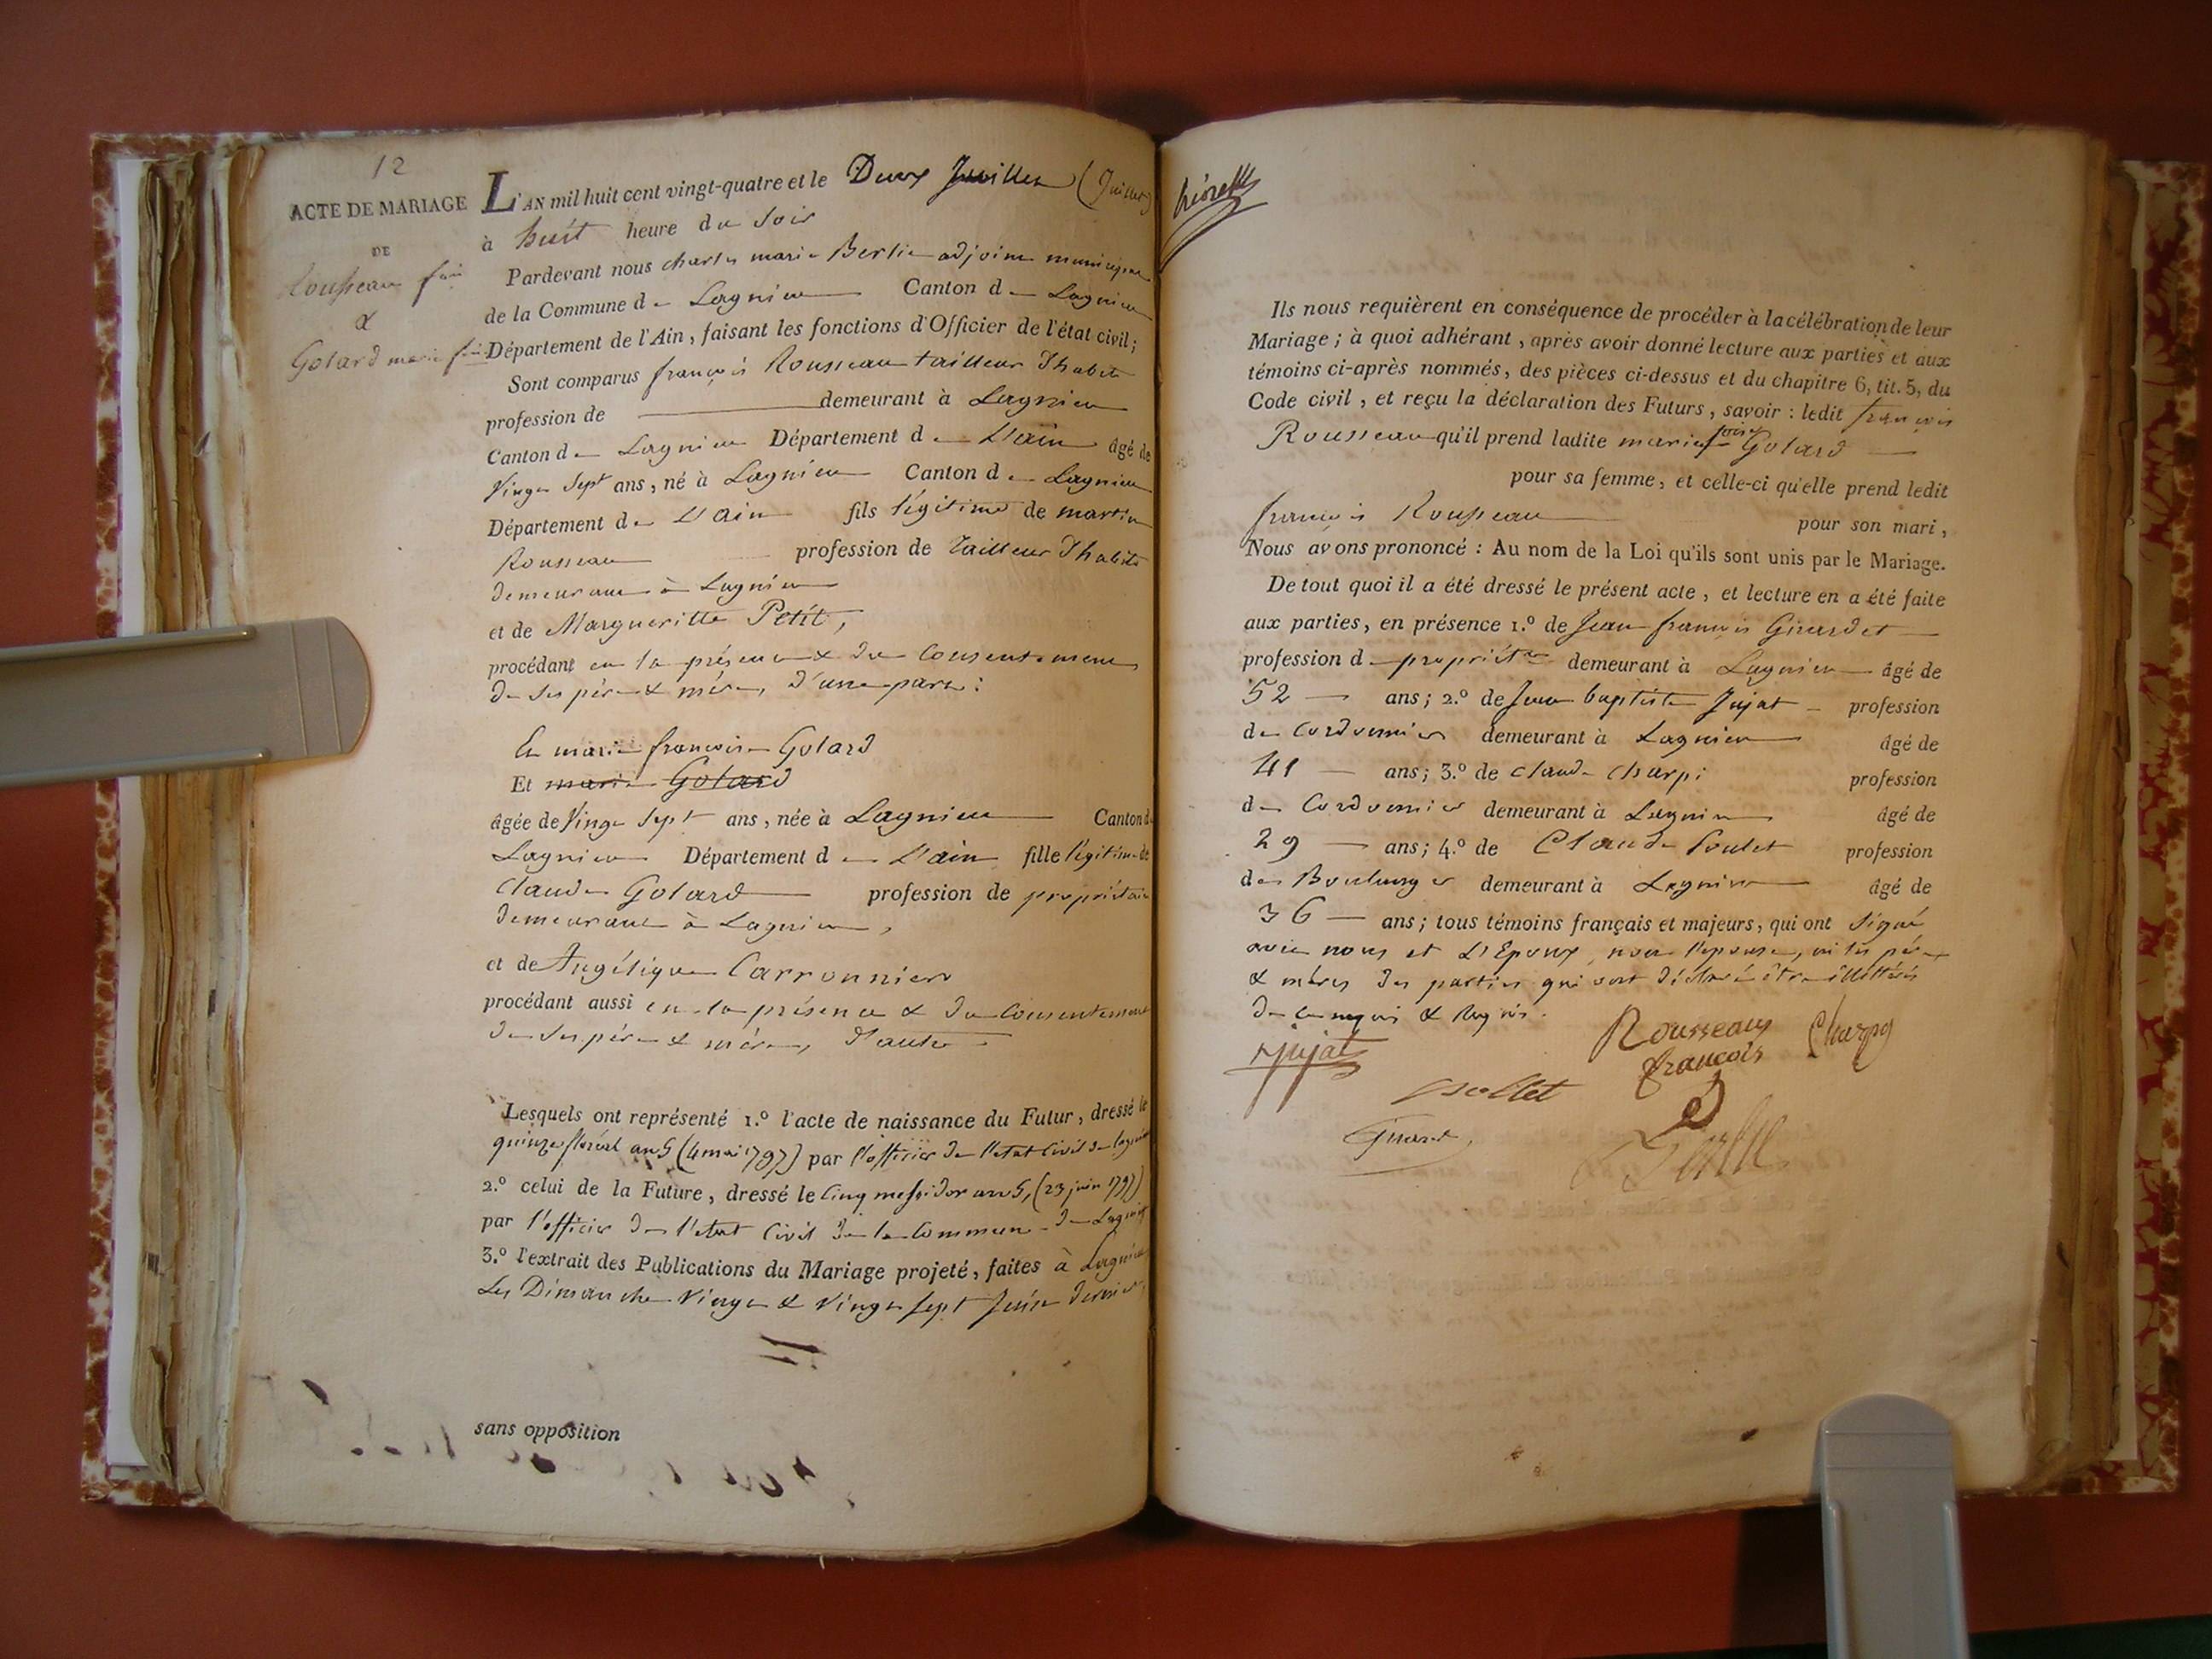 12
ACTE DE MARIAGE
DE
Rousseau fois
&
Golard marie foise
L'AN mil huit cent vingt-quatre et le Deux Juillet (Juillet)
à huit heure du soir
Pardevant nous charles marie Berlie adjoint municipal
de la Commune de Lagnieu Canton de Lagnieu
Département de l'Ain, faisant les fonctions d'Officier de l'état civil;
Sont comparus françois Rousseau tailleur d'habits
profession de demeurant à Lagnieu
Canton de Lagnieu Département de L'ain âgé de
Vingt Sept ans, né à Lagnieu Canton de Lagnieu
Département de L'ain fils légitime de martin
Rousseau profession de tailleur d'habits
demeurant à Lagnieu
et de Margueritte Petit,
procédant en la présence & du consentement
de ses père & mère, d'une part:
Et marie françoise Golard
Et marie Golard
âgée de Vingt Sept ans, née à Lagnieu Canton de
Lagnieu Département de L'ain fille légitime de
Claude Golard profession de propriétaire
demeurant à Lagnieu,
et de Angélique Carronnier
procédant aussi en la présence & du Consentement
de ses père & mère, d'autre
Lesquels ont représenté 1.º l'acte de naissance du Futur, dressé le
quinze floréal an 5 (4 mai 1797) par l'officier de l'etat civil de lagnieu
2.º celui de la Future, dressé le Cinq messidor an 5, (23 juin 1797)
par l'officier de l'etat Civil de la Commune de Lagnieu
3.º l'extrait des Publications du Mariage projeté, faites à Lagnieu
Les Dimanche Vingt & Vingt sept Juin dernier,
sans opposition
Ils nous requièrent en conséquence de procéder à la célébration de leur
Mariage; à quoi adhérant, après avoir donné lecture aux parties et aux
témoins ci-après nommés, des pièces ci-dessus et du chapitre 6, tit. 5, du
Code civil, et reçu la déclaration des Futurs, savoir: ledit françois
Rousseau qu'il prend ladite marie foise Golard
pour sa femme, et celle-ci qu'elle prend ledit
françois Rousseau pour son mari,
Nous avons prononcé: Au nom de la Loi qu'ils sont unis par le Mariage.
De tout quoi il a été dressé le présent acte, et lecture en a été faite
aux parties, en présence 1.º de Jean françois Girardet
profession de propriétre demeurant à Lagnieu âgé de
52 ans; 2.º de Jean baptiste Jujat profession
de Cordonnier demeurant à Lagnieu âgé de
41 ans; 3.º de Claude Charpi profession
de Cordonnier demeurant à Lagnieu âgé de
29 ans; 4.º de Claude Poulet profession
de Boulanger demeurant à Lagnieu âgé de
36 ans; tous témoins français et majeurs, qui ont signé
avec nous et L'Epoux, non l'epouse, ni les père
& mères des parties qui ont déclaré être illettérés
de ce enquis & requis.
Jujat
Rousseau
francois
Charpy
pollet